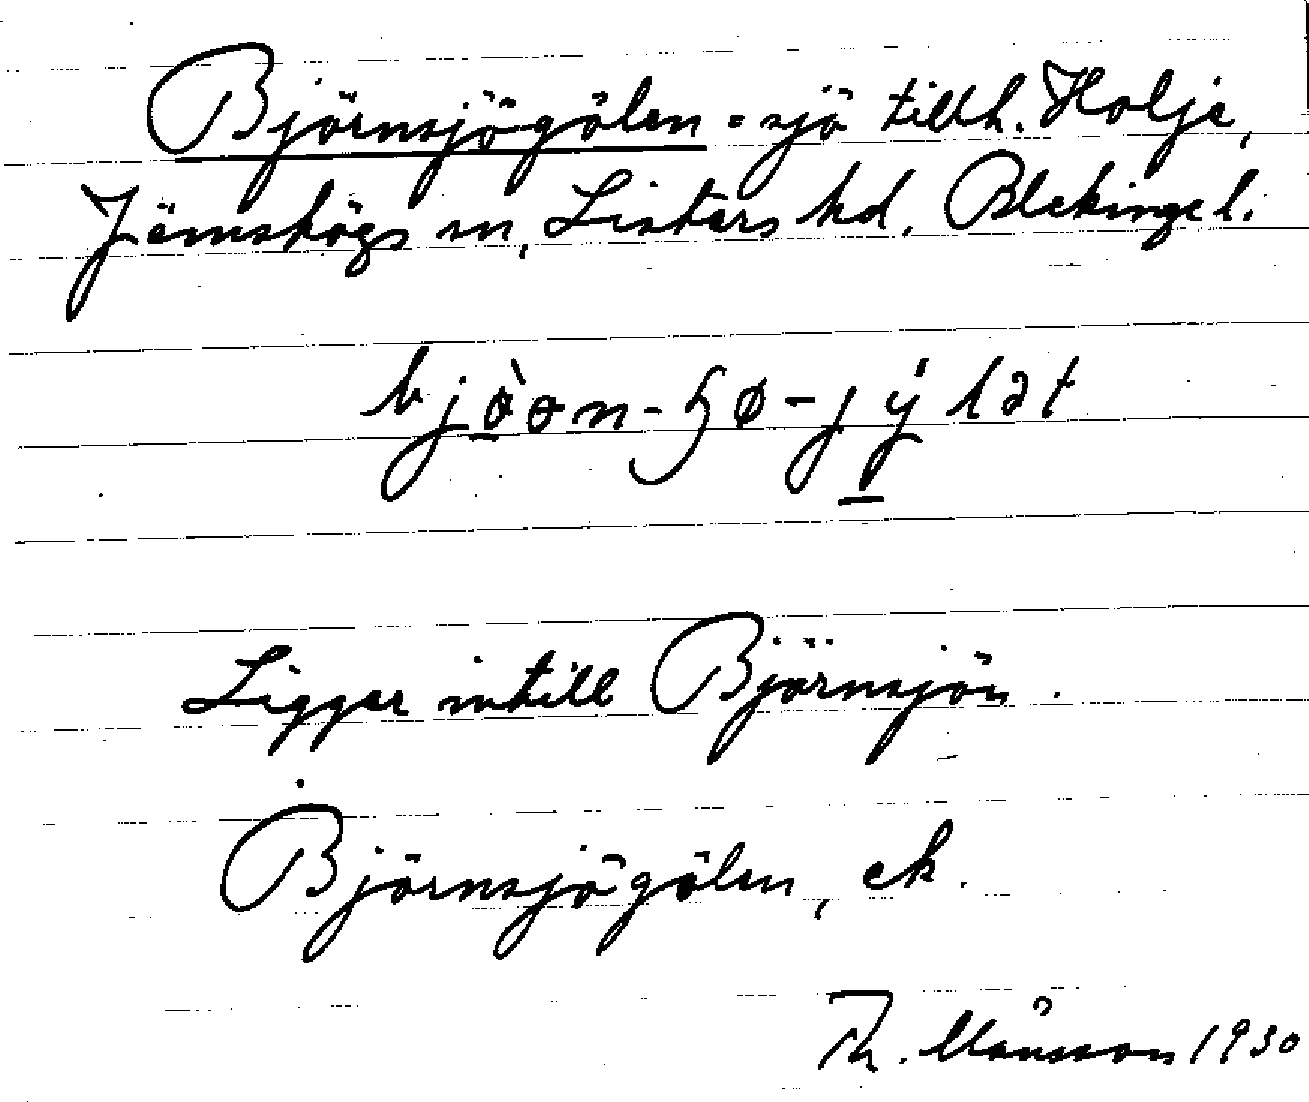 Björnsjögölen = sjö tillh. Holje,
Jämshögs sn, Listers hd. Blekinge l.
bjò̱ɵn-ɧø-jý̱lət
Ligger intill Björnsjön.
Björnsjögölen, ek.
Th. Månsson 1930